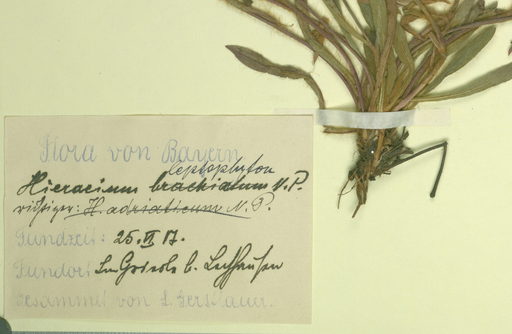 Flora von Bayern
leptophyton
Hieracium brachiatum N. P.
richtiger: H. adriaticum N. P.
Fundzeit: 25. VI. 17.
Fundort: b. Lechhausen
Gesammelt von L. Gerstlauer.